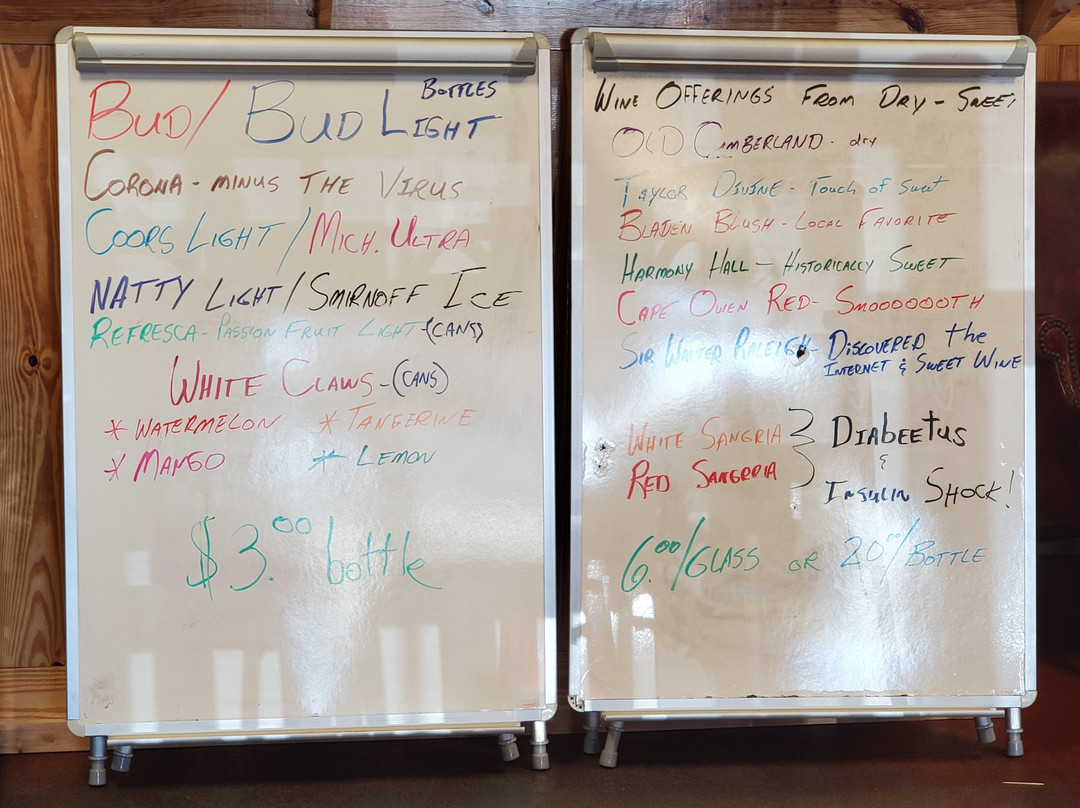 BUD/ BUD LIGHT BOTTLES
CORONA - MINUS THE VIRUS
COORS LIGHT / MICH. ULTRA
NATTY LIGHT / SMIRNOFF ICE
REFRESCA - PASSION FRUIT LIGHT - (CANS)
WHITE CLAWS - (CANS)
* WATERMELON * TANGERINE
* MANGO * LEMON
$3.00 bottle
WINE OFFERINGS FROM DRY - SWEET
OLD CUMBERLAND - dry
TAYLOR DIVINE - Touch of Sweet
BLADEN BLUSH - LOCAL FAVORITE
HARMONY HALL - HISTORICALLY SWEET
CAPE OWEN RED - SMOOOOOOTH
SIR WALTER RALEIGH - DISCOVERED the
INTERNET & SWEET WINE
WHITE SANGRIA } DIABEETUS
&
RED SANGRRIA INSULIN SHOCK!
6.00/GLASS OR 20.00/BOTTLE